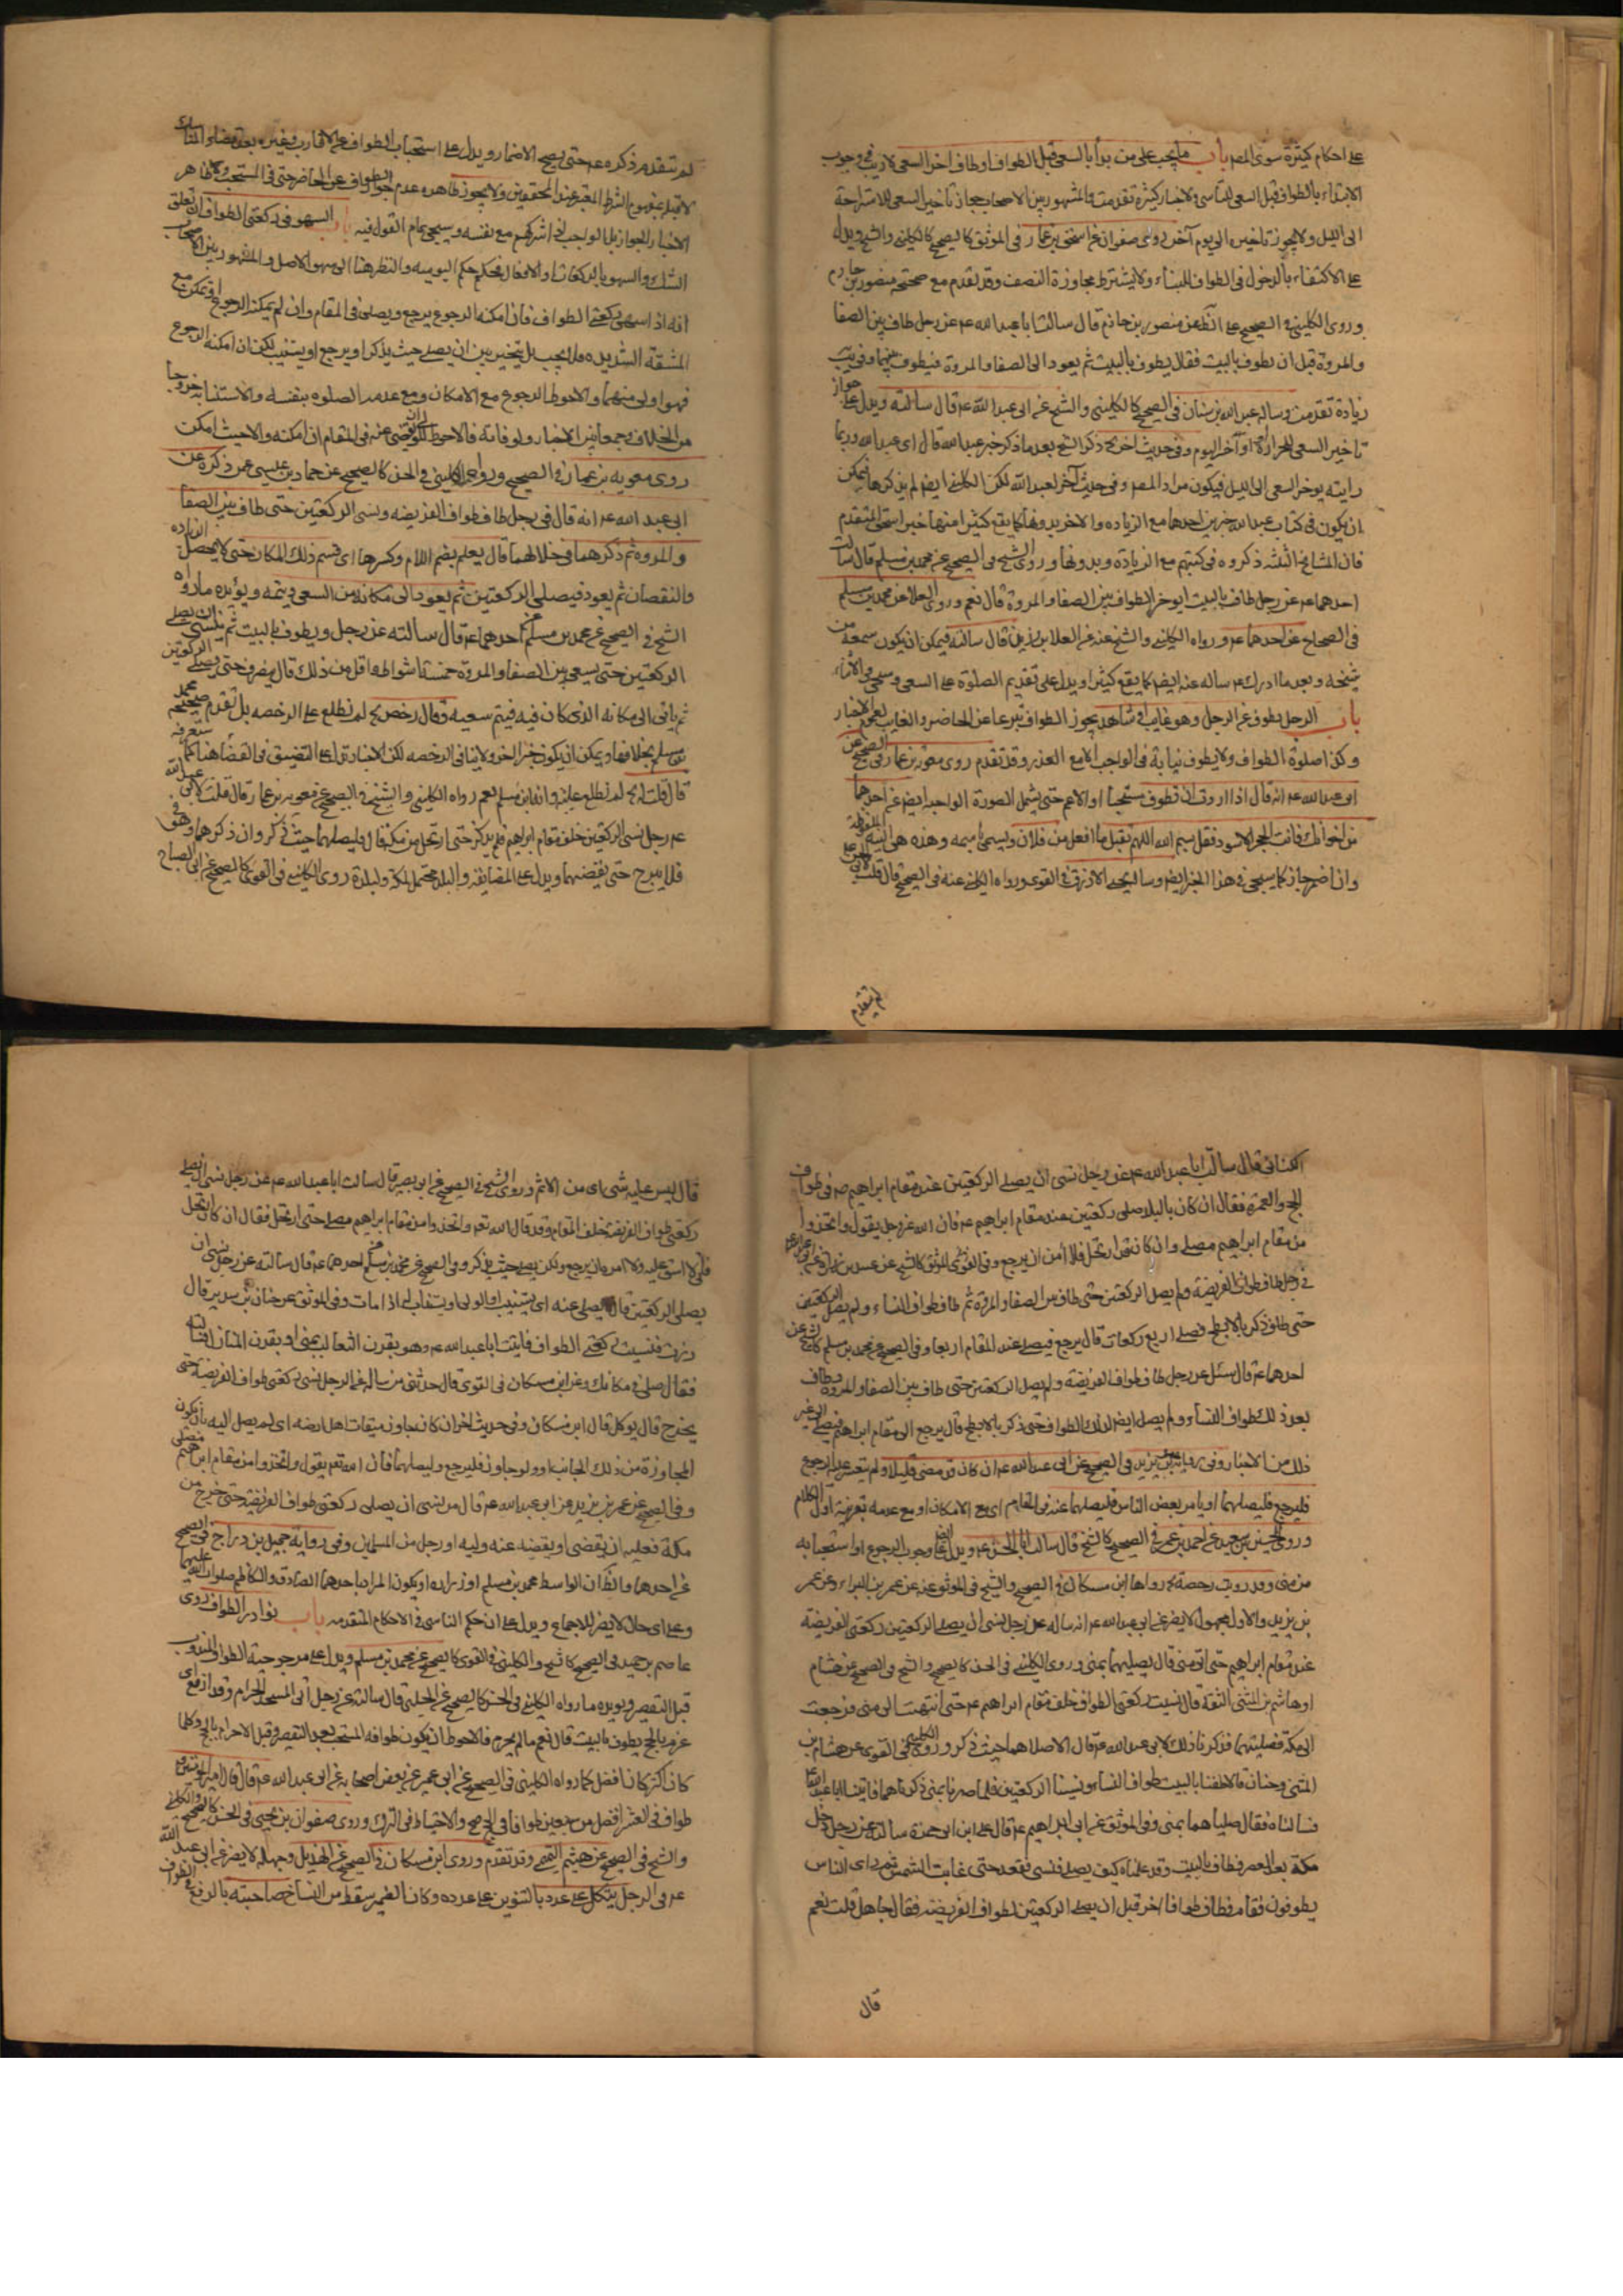 على احكام كثيرة سوى المم باب ما يجب على من بدأ بالسعى قبل الطواف او طاف اخر السعى لا ريب فى وجوب
الابتداء بالطواف قبل السعى للتأسى ولاخبار كثيرة تقدمت والمشهور بين الاصحاب جواز تأخير السعى للاستراحة
الى الليل ولا يجوز تاخيره الى يوم آخر روى صفوان عن اسحق بن عمار فى الموثق كالصحيح كالكلينى والشيخ ويدل
على الاكتفاء بالدخول فى الطواف للبناء ولا يشترط مجاوزة النصف وقد تقدم مع صحيحة منصور بن حازم
وروى الكلينى فى الصحيح على الظ عن منصور بن حازم قال سالت ابا عبد الله عم عن رجل طاف بين الصفا
والمروة قبل ان يطوف بالبيت فقال يطوف بالبيت ثم يعود الى الصفا والمروة فيطوف بينهما وفى
زيادة تقدمت وساله عبد الله بن سنان فى الصحيح كالكلينى والشيخ عن ابى عبد الله عم قال سالته ويدل على جواز
تاخير السعى للحرارة او آخر اليوم وفى حديث اخر ذكر الشيخ بعد ما ذكر خبر عبد الله قال اى عبد الله وربما
رايته يؤخر السعى الى الليل فيكون مراد المم وفى حديث آخر لعبد الله لكن الكلينى ايضا لم يذكرها فيمكن
ان يكون فى كتاب عبد الله خبرين احدهما مع الزياده والاخر بدونها كما يقع كثيرا منها خبر اسحق المتقدم
فان المشايخ الثلثه ذكروه فى كتبهم مع الزيادة وبدونها وروى الشيخ فى الصحيح عن محمد بن مسلم قال سالت
احدهما عم عن رجل طاف بالبيت ايؤخر الطواف بين الصفا والمروة قال نعم وروى العلا عن محمد بن مسلم
فى الصحاح عن احدهما عم ورواه الكلينى والشيخ عنه عن العلا بن رزين قال سالته فيمكن ان يكون سمعه من
شيخه وبعد ما ادركه عم ساله عنه ايضا كما يقع كثيرا ويدل على تقديم الصلوة على السعى وسيجى
باب الرجل يطوف عن الرجل وهو غايب او شاهد يجوز الطواف تبرعا عن الحاضر والغايب لعموم الاخبار
وكذا صلوة الطواف ولا يطوف نيابة فى الواجب الا مع العذر وقد تقدم روى معوية بن عمار فى الصحيح عن
ابى عبد الله عم انه قال اذا اردت ان تطوف مستحبا او الاعم حتى يشمل الصورة الواجب ايضا عن احدهما
من اخوانك فائت الحجر الاسود فقل بسم الله اللهم تقبل ما افعل من فلان ويسمى باسمه وهذه هى النية الملفوظة
وان اضمر جاز كما سيجى فى هذا الخبر ايضا وسال يحيى الازرق فى القوى ورواه الكلينى عنه فى الصحيح قال قلت لابى الحسن عم
لم يتقدم
لم يتقدم ذكره عم حتى يصح الاضمار ويدل على استحباب الطواف عن الاقارب وغيره بعد قضاء المناسك
لا قبله بمفهوم الشرط المعتبر عند المحققين ولا يجوز ظاهره عدم جواز الطواف عن الحاضر حتى فى المستحب وظاهر
الاخبار الجواز بل الواجب اذا اشركهم مع نفسه وسيجى تمام القول فيه باب السهو فى ركعتى الطواف ان تعلق
الشك والسهو بالركعات او الافعال فحكمه حكم اليوميه والنظر هنا الى سهو الاصل والمشهور بين الاصحاب
انه اذا سهى ركعتى الطواف فان امكنه الرجوع يرجع ويصلى فى المقام وان لم يمكنه الرجوع او تمكن مع
المشقة الشديده فلا يجب بل يتخير بين ان يصلى حيث يذكر او يرجع او يستنيب لكن ان امكنه الرجوع
فهو اولى منهما والاحوط الرجوع مع الامكان ومع عدمه الصلوه بنفسه والاستنابة خروجا
من الخلاف وجمعا بين الاخبار ولو فاته فالاحوط للولى ان يقضى عنه فى المقام ان امكنه والا حيث امكن
روى معويه بن عمار فى الصحيح ورواه الكلينى فى الحسن كالصحيح عن حماد بن عيسى عمن ذكره عن
ابى عبد الله عم انه قال فى رجل طاف طواف الفريضه ونسى الركعتين حتى طاف بين الصفا
والمروه ثم ذكر هما فى خلالهما قال يعلم بضم اللام وكسرها اى يسم ذلك المكان حتى لا يحصل الزياده
والنقصان ثم يعود فيصلى الركعتين ثم يعود الى مكانه من السعى ويتمه ويؤيده ما رواه
الشيخ فى الصحيح عن محمد بن مسلم عن احدهما عم قال سالته عن رجل ويطوف بالبيت ثم ينسى ان يصلى
الركعتين حتى يسعى بين الصفا والمروة خمسة اشواط او اقل من ذلك قال ينصرف حتى يصلى الركعتين
ثم ياتى الى مكانه الذى كان فيه فيتم سعيه وقال رخص لم نطلع على الرخصه بل تقدم صحيحة محمد
بن مسلم بخلافها ويمكن ان يكون خبر اخر ولا ينافى الرخصه لكن الاخبار تدل على التضييق فى القضاء هنا كما ستعرفه
قال قلت لم نطلع عليه وانه ابن مسلم نعم رواه الكلينى والشيخ فى الصحيح عن معويه بن عمار قال قلت لابى عبد الله
عم رجل نسى الركعتين خلف مقام ابرهيم فلم يذكر حتى ارتحل من مكة قال فليصلهما حيث ذكر وان ذكرهما وهو فى
فلا يبرح حتى يقضيهما ويدل على المضايقه والبلد محتمل لمكة ولبلدة روى الكلينى فى القوى كالصحيح عن ابى الصباح
الكنانى قال سالت ابا عبد الله عم عن رجل نسى ان يصلى الركعتين عند مقام ابراهيم عم فى طواف
الحج والعمره فقال ان كان بالبلد صلى ركعتين عند مقام ابراهيم عم فان الله عز وجل يقول واتخذوا
من مقام ابراهيم مصلى وان كان قد ارتحل فلا آمره ان يرجع وفى القوى للموثق كالشيخ عن عبيد بن زرارة
فى رجل طاف طواف الفريضة ولم يصل الركعتين حتى طاف بين الصفا والمروة ثم طاف طواف النساء ولم يصل الركعتين
حتى ذكر بالابطح فصلى اربع ركعات قال يرجع فيصلى عند المقام اربعا وفى الصحيح عن محمد بن مسلم كالشيخ عن
احدهما عم قال سئل عن رجل طاف طواف الفريضة ولم يصل الركعتين حتى طاف بين الصفا والمروة وطاف
بعد ذلك طواف النساء ولم يصل ايضا لذلك الطواف حتى ذكر بالابطح قال يرجع الى مقام ابراهيم فيصلى الى غير
ذلك من الاخبار وفى رواية عمر بن يزيد فى الصحيح عن ابى عبد الله عم ان كان قد مضى قليلا ولم يتعسر عليه الرجوع
فليرجع فليصلهما او يامر بعض الناس فليصلهما عنه فى المقام اى مع الامكان او مع عدمه بقرينة اول الكلام
وروى الحسين بن سعيد عن احمد بن عمر فى الصحيح كالشيخ قال سالت ابا الحسن عم ويدل ايضا على وجوب الرجوع او استحبابه
من منى وقد رويت رخصة رواها ابن مسكان فى الصحيح والشيخ فى الموثق عنه عن عمر بن البراء وعن عمر
بن يزيد والاول مجهول لا يضر عن ابى عبد الله عم انه ساله عن رجل نسى ان يصلى الركعتين ركعتى الفريضة
عند مقام ابرهيم حتى اتى منى قال يصليهما بمنى وروى الكلينى فى الحسن كالصحيح والشيخ فى الصحيح عن هشام
او هاشم بن المثنى الثقة قال نسيت ركعتى الطواف خلف مقام ابراهيم عم حتى انتهيت الى منى فرجعت
الى مكة فصليتهما فذكرنا ذلك لابى عبد الله عم قال الا صلاهما حيث ذكر وروى الكلينى فى القوى عن هشام بن
المثنى وحنان قالا طفنا بالبيت طواف النساء ونسينا الركعتين فلما صرنا بمنى ذكرناهما فاتينا ابا عبد الله عم
فسالناه فقال صلياهما بمنى وفى الموثق عن ابى ابراهيم عم قال على ابن ابى حمزة سالته عن رجل دخل
مكة بعد العصر فطاف بالبيت وقد علمناه كيف يصلى فنسى فقعد حتى غابت الشمس ثم راى الناس
يطوفون فقام فطاف طوافا اخر قبل ان يصلى الركعتين لطواف الفريضه فقال جاهل قلت نعم
قال
قال ليس عليه شى اى من الاثم وروى الشيخ فى الصحيح عن ابى بصير قال سالت ابا عبد الله عم عن رجل نسى ان يصلى
ركعتى طواف الفريضة خلف المقام وقد قال الله تعم واتخذوا من مقام ابراهيم مصلى حتى ارتحل فقال ان كان ارتحل
فانى لا اشق عليه ولا آمره ان يرجع ولكن يصلى حيث يذكر وفى الصحيح عن محمد بن مسلم عن احدهما عم قال سالته عن رجل نسى ان
يصلى الركعتين قال يصلى عنه اى يستنيب او الولى ويستناب له اذا مات وفى الموثق عن حنان بن سدير قال
زرت فنسيت ركعتى الطواف فاتيت ابا عبد الله عم وهو بقرن الثعالب بمنى او بقرن المنازل فسالته
فقال صل فى مكانك وعن ابن مسكان فى القوى قال حدثنى من ساله عن الرجل نسى ركعتى طواف الفريضة حتى
يخرج قال يوكل قال ابن مسكان وفى حديث اخر ان كان جاوز ميقات اهل ارضه اى لم يصل اليه بان يكون
المجاوزة من ذلك الجانب او ولو جاوز فليرجع وليصلهما فان الله تعم يقول واتخذوا من مقام ابراهيم مصلى
وفى الصحيح عن عمر بن يزيد عن ابى عبد الله عم قال من نسى ان يصلى ركعتى طواف الفريضة حتى خرج من
مكة فعليه ان يقضى او يقضيه عنه وليه او رجل من المسلمين وفى رواية جميل بن دراج فى الصحيح
عن احدهما والظ ان الواسط محمد بن مسلم او زراره او يكون المراد باحدهما الصادق والكاظم صلوات الله عليهما
وعلى اى حال لا يضر للاجماع ويدل على ان حكم الناسى فى الاحكام المتقدمه باب نوادر الطواف روى
عاصم بن حميد فى الصحيح كالشيخ والكلينى فى القوى كالصحيح عن محمد بن مسلم ويدل على مرجوحية الطواف المندوب
قبل التقصير ويؤيده ما رواه الكلينى فى الحسن كالصحيح عن الحلبى قال سالته عن رجل اتى المسجد الحرام وقد ازمع اى
عزم بالحج يطوف بالبيت قال نعم ما لم يحرم فالاحوط ان يكون طوافه المستحب بعد التقصير وقبل الاحرام بالحج وكلما
كان اكثر كان افضل كما رواه الكلينى فى الصحيح عن ابن ابى عمير عن بعض اصحابه عن ابى عبد الله عم قال قال امير المؤمنين
طواف فى العشر افضل من سبعين طوافا فى الحج والاحتياط فى الترك وروى صفوان بن يحيى فى الحسن كالصحيح والكلينى
والشيخ فى الصحيح عن هيثم التميمى وقد تقدم وروى ابن مسكان فى الصحيح عن الهذيل وجهله لا يضر عن ابى عبد الله
عم فى الرجل يتكل على عدد بالتنوين على عدده وكان الضمير سقط من النساخ صاحبته بالرفع فى الطواف